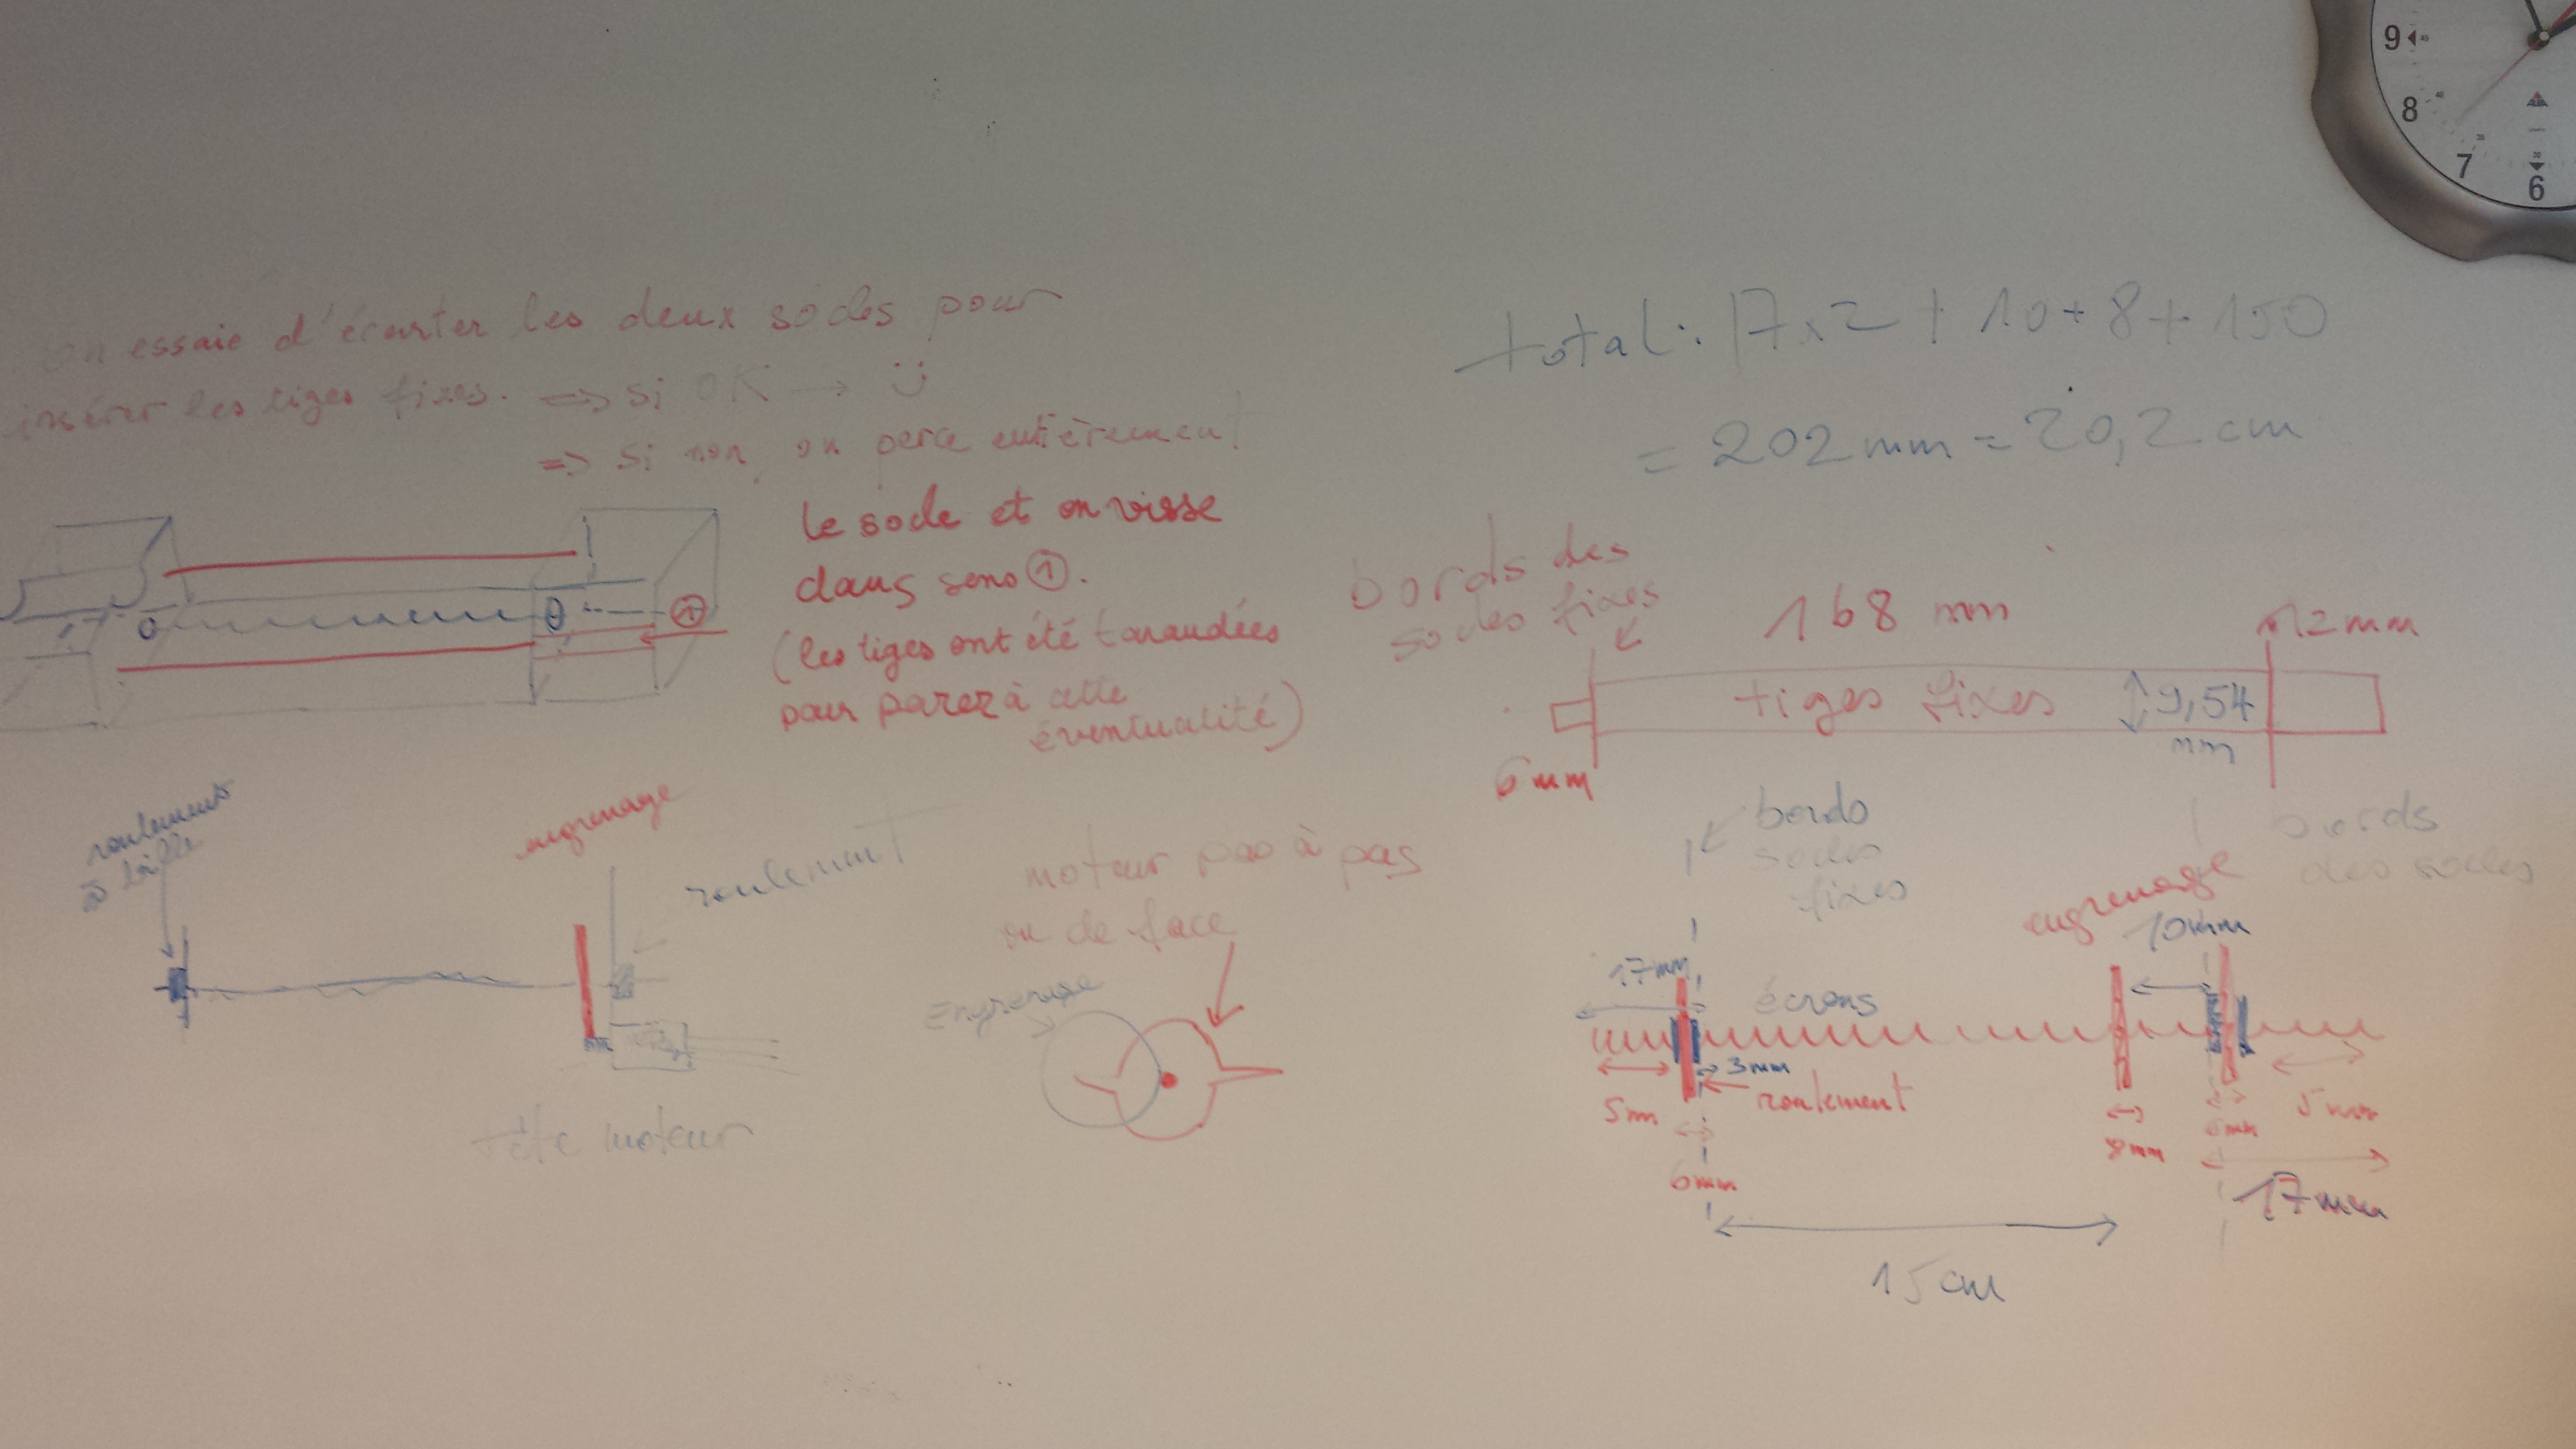 On essaie d'écarter les deux socles pour
insérer les tiges fixes. => si OK →
=> si non, on perce entièrement
le socle et on visse
dans sens ①.
(les tiges ont été taraudées
pour parer à cette
éventualité)
①
total: 17x2 + 10+8+150
= 202mm = 20,2 cm
bords des
socles fixes
168 mm
12mm
tiges fixes
9,54
mm
6mm
roulement
à bille
engrenage
roulement
tête moteur
moteur pas à pas
vu de face
Engrenage
bords
socles
fixes
bords
des socles
engrenage
10mm
17mm
écrous
3mm
roulement
5mm
6mm
8mm
6mm
5mm
17mm
15cm
9
8
7
6